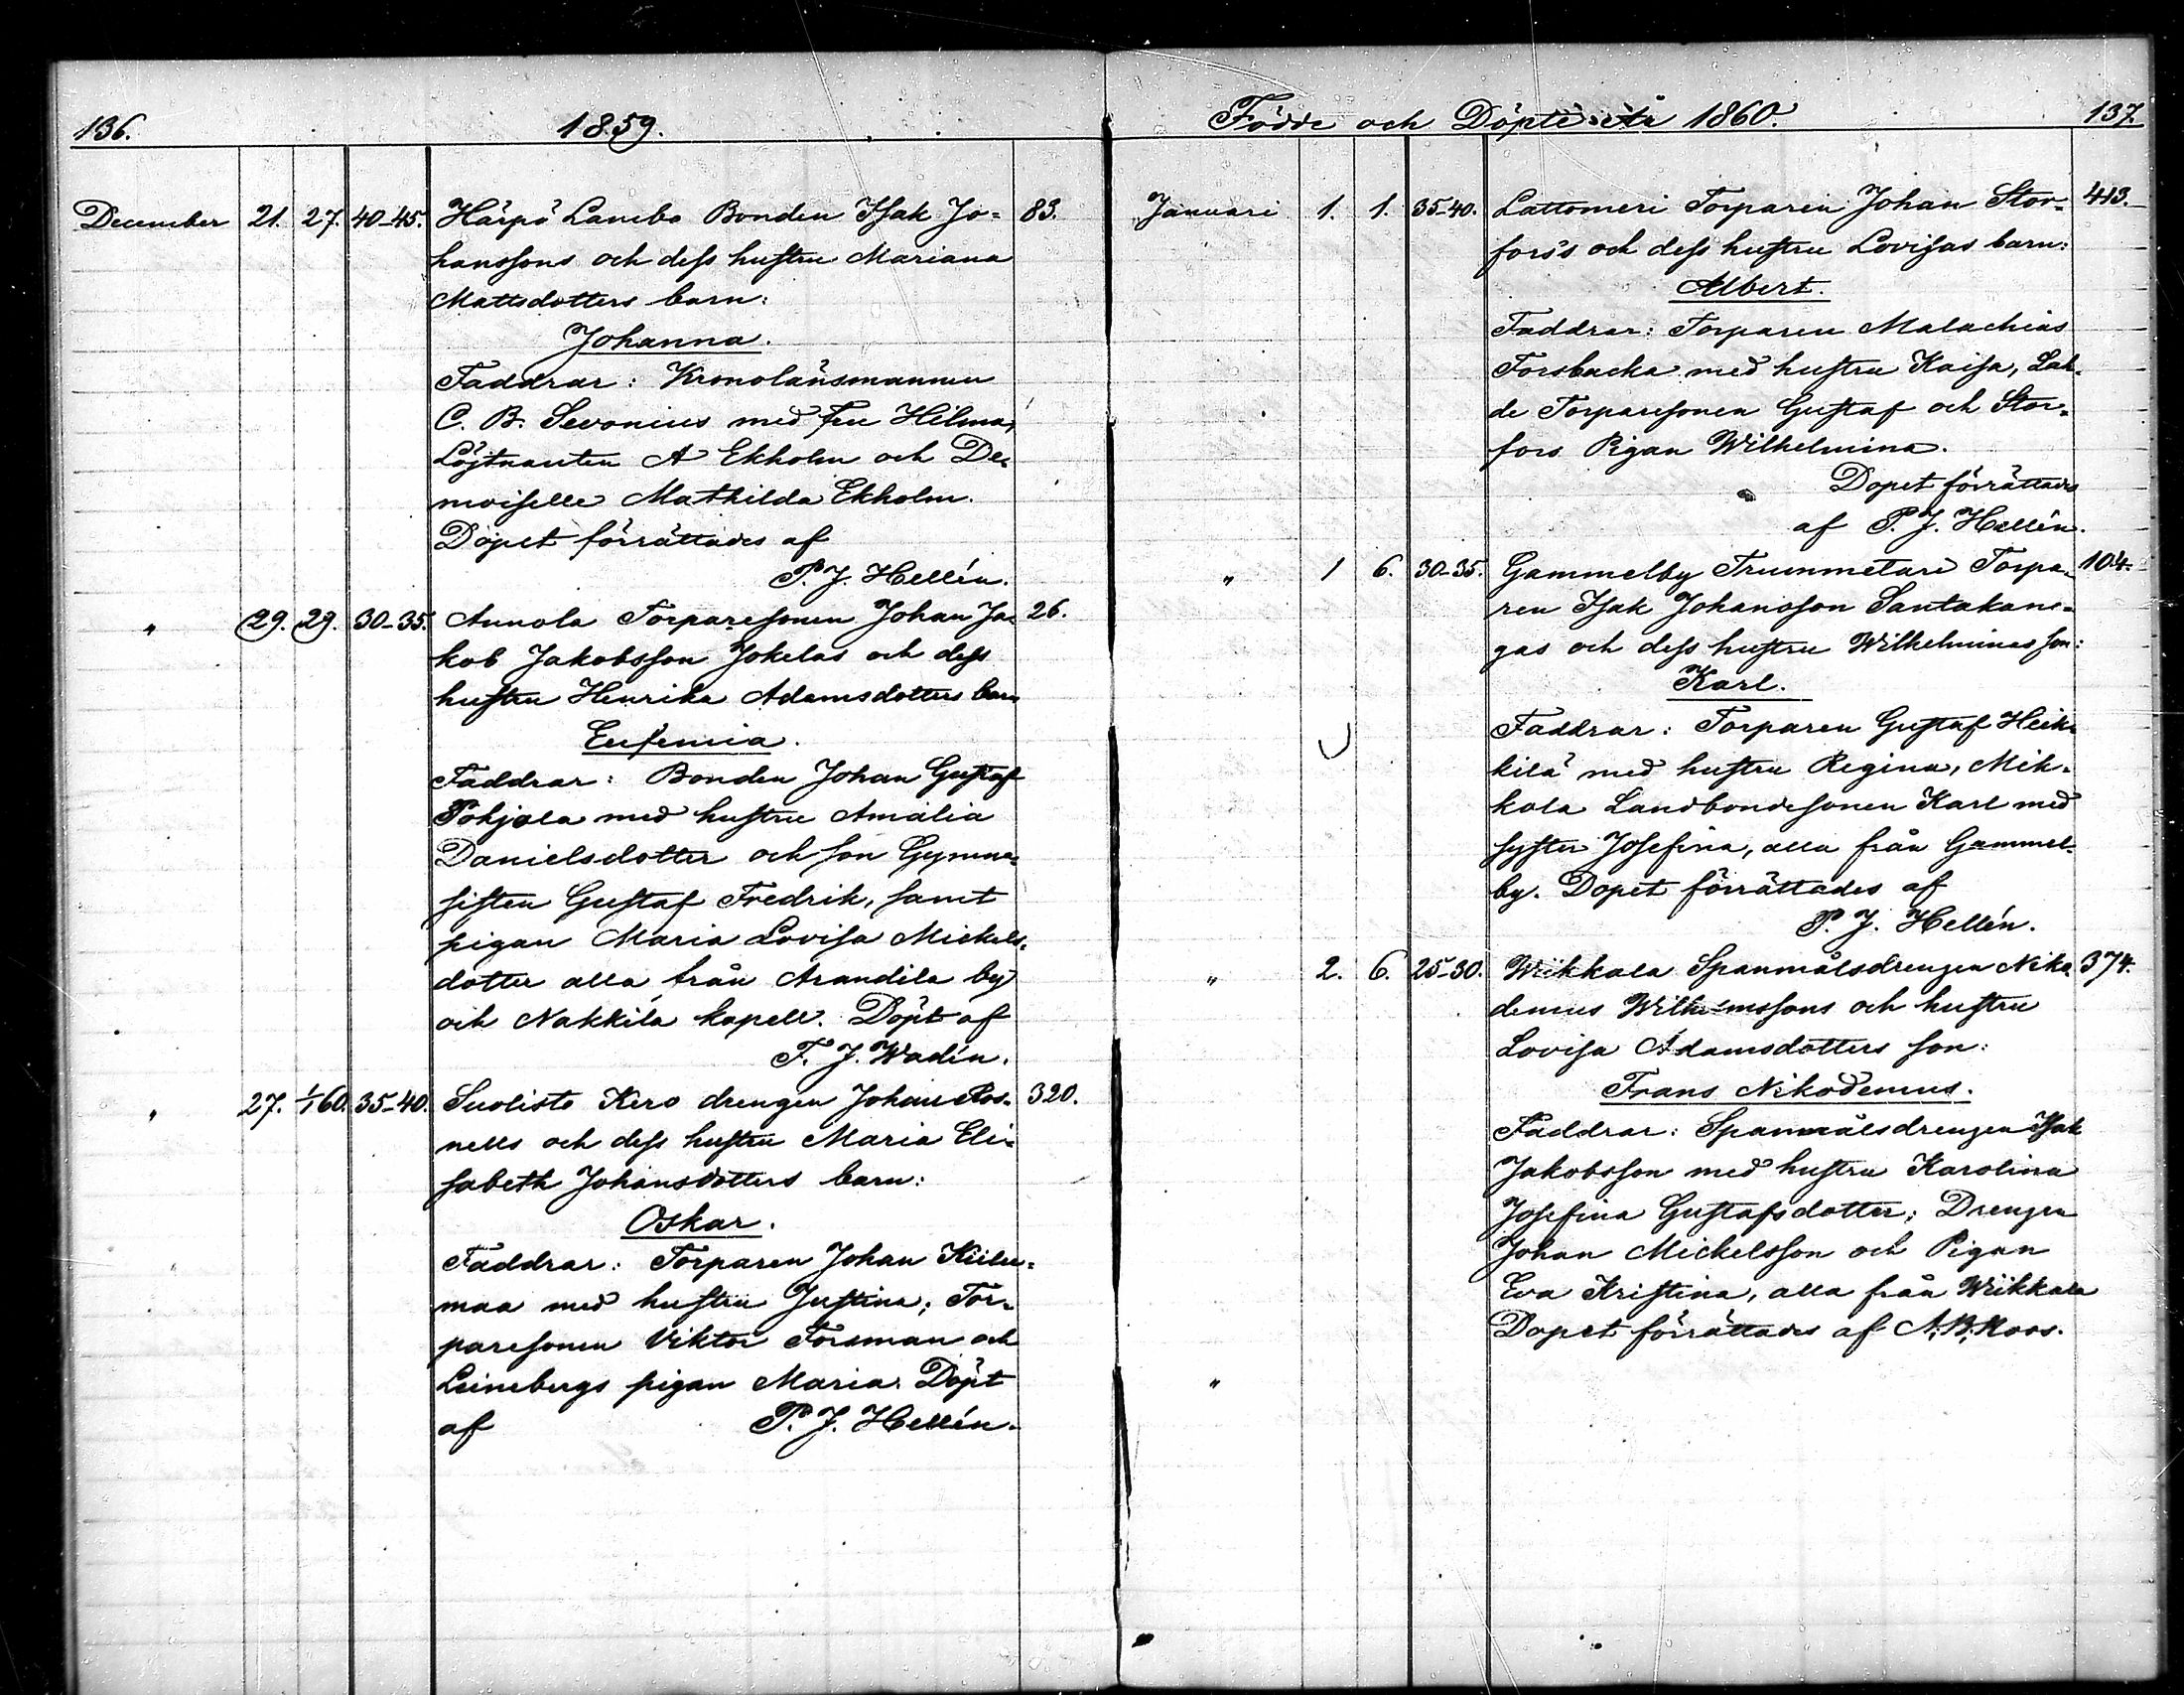 136.
1859.
December 21. 27. 40-45. Härpö Lambo Bonden Isak Jo- 83.
hanssons och dess hustru Mariana
Mattsdotters barn:
Johanna.
Faddrar: Kronolänsmannen
C. B. Sevonius med fru Hilma,
Löjtnanten A Ekholm och De-
moiselle Mathilda Ekholm.
Dopet förrättades af
P. J. Hellén.
" 29. 29. 30-35. Annola Torparesonen Johan Ja- 26.
kob Jakobsson Jokelas och dess
hustru Henrika Adamsdotters barn
Eufemia.
Faddrar: Bonden Johan Gustaf
Pohjala med hustru Amalia
Danielsdotter och son Gymna-
sisten Gustaf Fredrik, samt
pigan Maria Lovisa Mickels-
dotter alla från Arandila by
och Nakkila kapell. Döpt af
F. J. Wadén.
" 27. 1/1 60. 35-40. Suolisto Kero drengen Johan Ros- 320.
nells och dess hustru Maria Eli-
sabeth Johansdotters barn:
Oskar.
Faddrar: Torparen Johan Kiilu-
maa med hustru Justina; Tor-
paresonen Viktor Forsman och
Leinebergs pigan Maria. Döpt
af P. J. Hellén.
Födde och Döpte år 1860.
137.
Januari 1. 1. 35-40. Lattomeri Torparen Johan Stor- 413.
fors's och dess hustru Lovisas barn:
Albert.
Faddrar: Torparen Malachias
Forsbacka med hustru Kaisa, Lah-
de Torparesonen Gustaf och Stor-
fors Pigan Wilhelmina.
Dopet förrättades
af P. J. Hellén.
" 1 6. 30-35. Gammelby Trummetari Torpa- 104.
ren Isak Johansson Santakan-
gas och dess hustru Wilhelminas son:
Karl.
Faddrar: Torparen Gustaf Heik-
kilä med hustru Regina, Mik-
kola Landbondesonen Karl med
syster Josefina, alla från Gammel-
by. Dopet förrättades af
P. J. Hellén.
" 2. 6. 25-30. Wiikkala Spanmålsdrengen Niko- 374.
demus Wilhelmssons och hustru
Lovisa Adamsdotters son:
Frans Nikodemus.
Faddrar: Spanmålsdrengen Isak
Jakobsson med hustru Karolina
Josefina Gustafsdotter; Drengen
Johan Mickelsson och Pigan
Eva Kristina, alla från Wiikkala
Dopet förrättades af A. B. Roos.
"